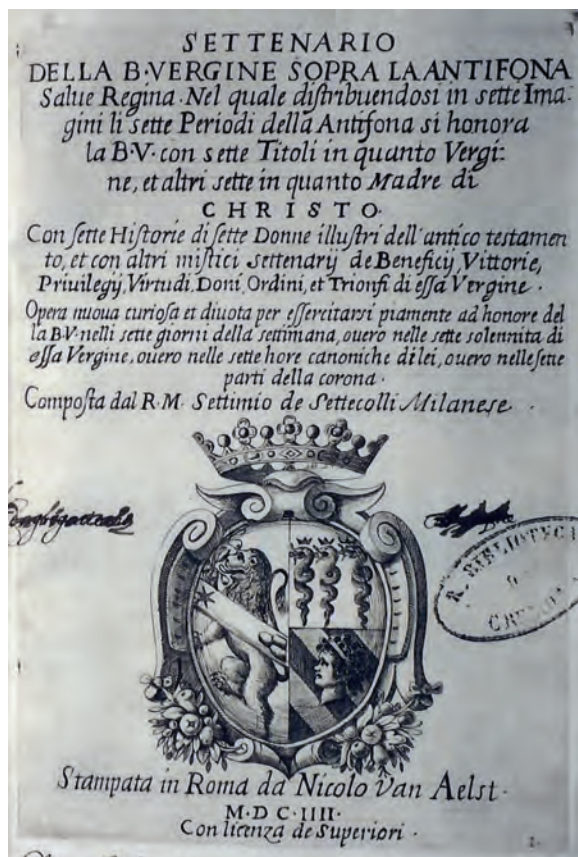 SETTENARIO
DELLA B·VERGINE SOPRA LA ANTIFONA
Salue Regina·Nel quale diſtribuendosi in sette Ima-
gini li sette Periodi della Antifona si honora
la B·V· con sette Titoli in quanto Vergi:
ne, et altri sette in quanto Madre di
CHRISTO·
Con ſette Hiſtorie di ſette Donne illuſtri dell'antico teſtamen
to, et con altri miſtici ſettenarij de Beneficij, Vittorie,
Priuilegij, Virtudi, Doni, Ordini, et Trionfi di eſſa Vergine ·
Opera nuoua curioſa et diuota per eſſercitarſi piamente ad honore del
la B·V· nelli sette giorni della settimana, ouero nelle sette solennita di
eſſa Vergine, ouero nelle sette hore canoniche di lei, ouero nelle ſette
parti della corona ·
Compoſta dal R·M· Settimio de Settecolli Milanese ·
R. BIBLIOTECA
Stampata in Roma da Nicolo Van Aelst·
M·D C·IIII·
Con licenza de Superiori ·
1·